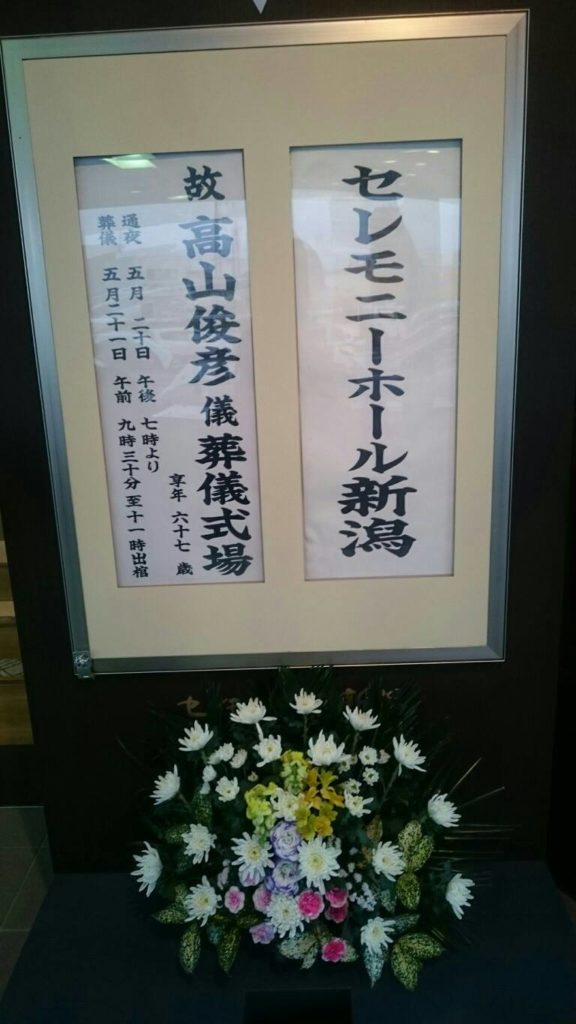 セレモニーホール新潟
故 高山俊彦 儀 葬儀式場
享年 六十七 歳
通夜 五月 二十日 午後 七時より
葬儀 五月二十一日 午前 九時三十分 至十一時出棺